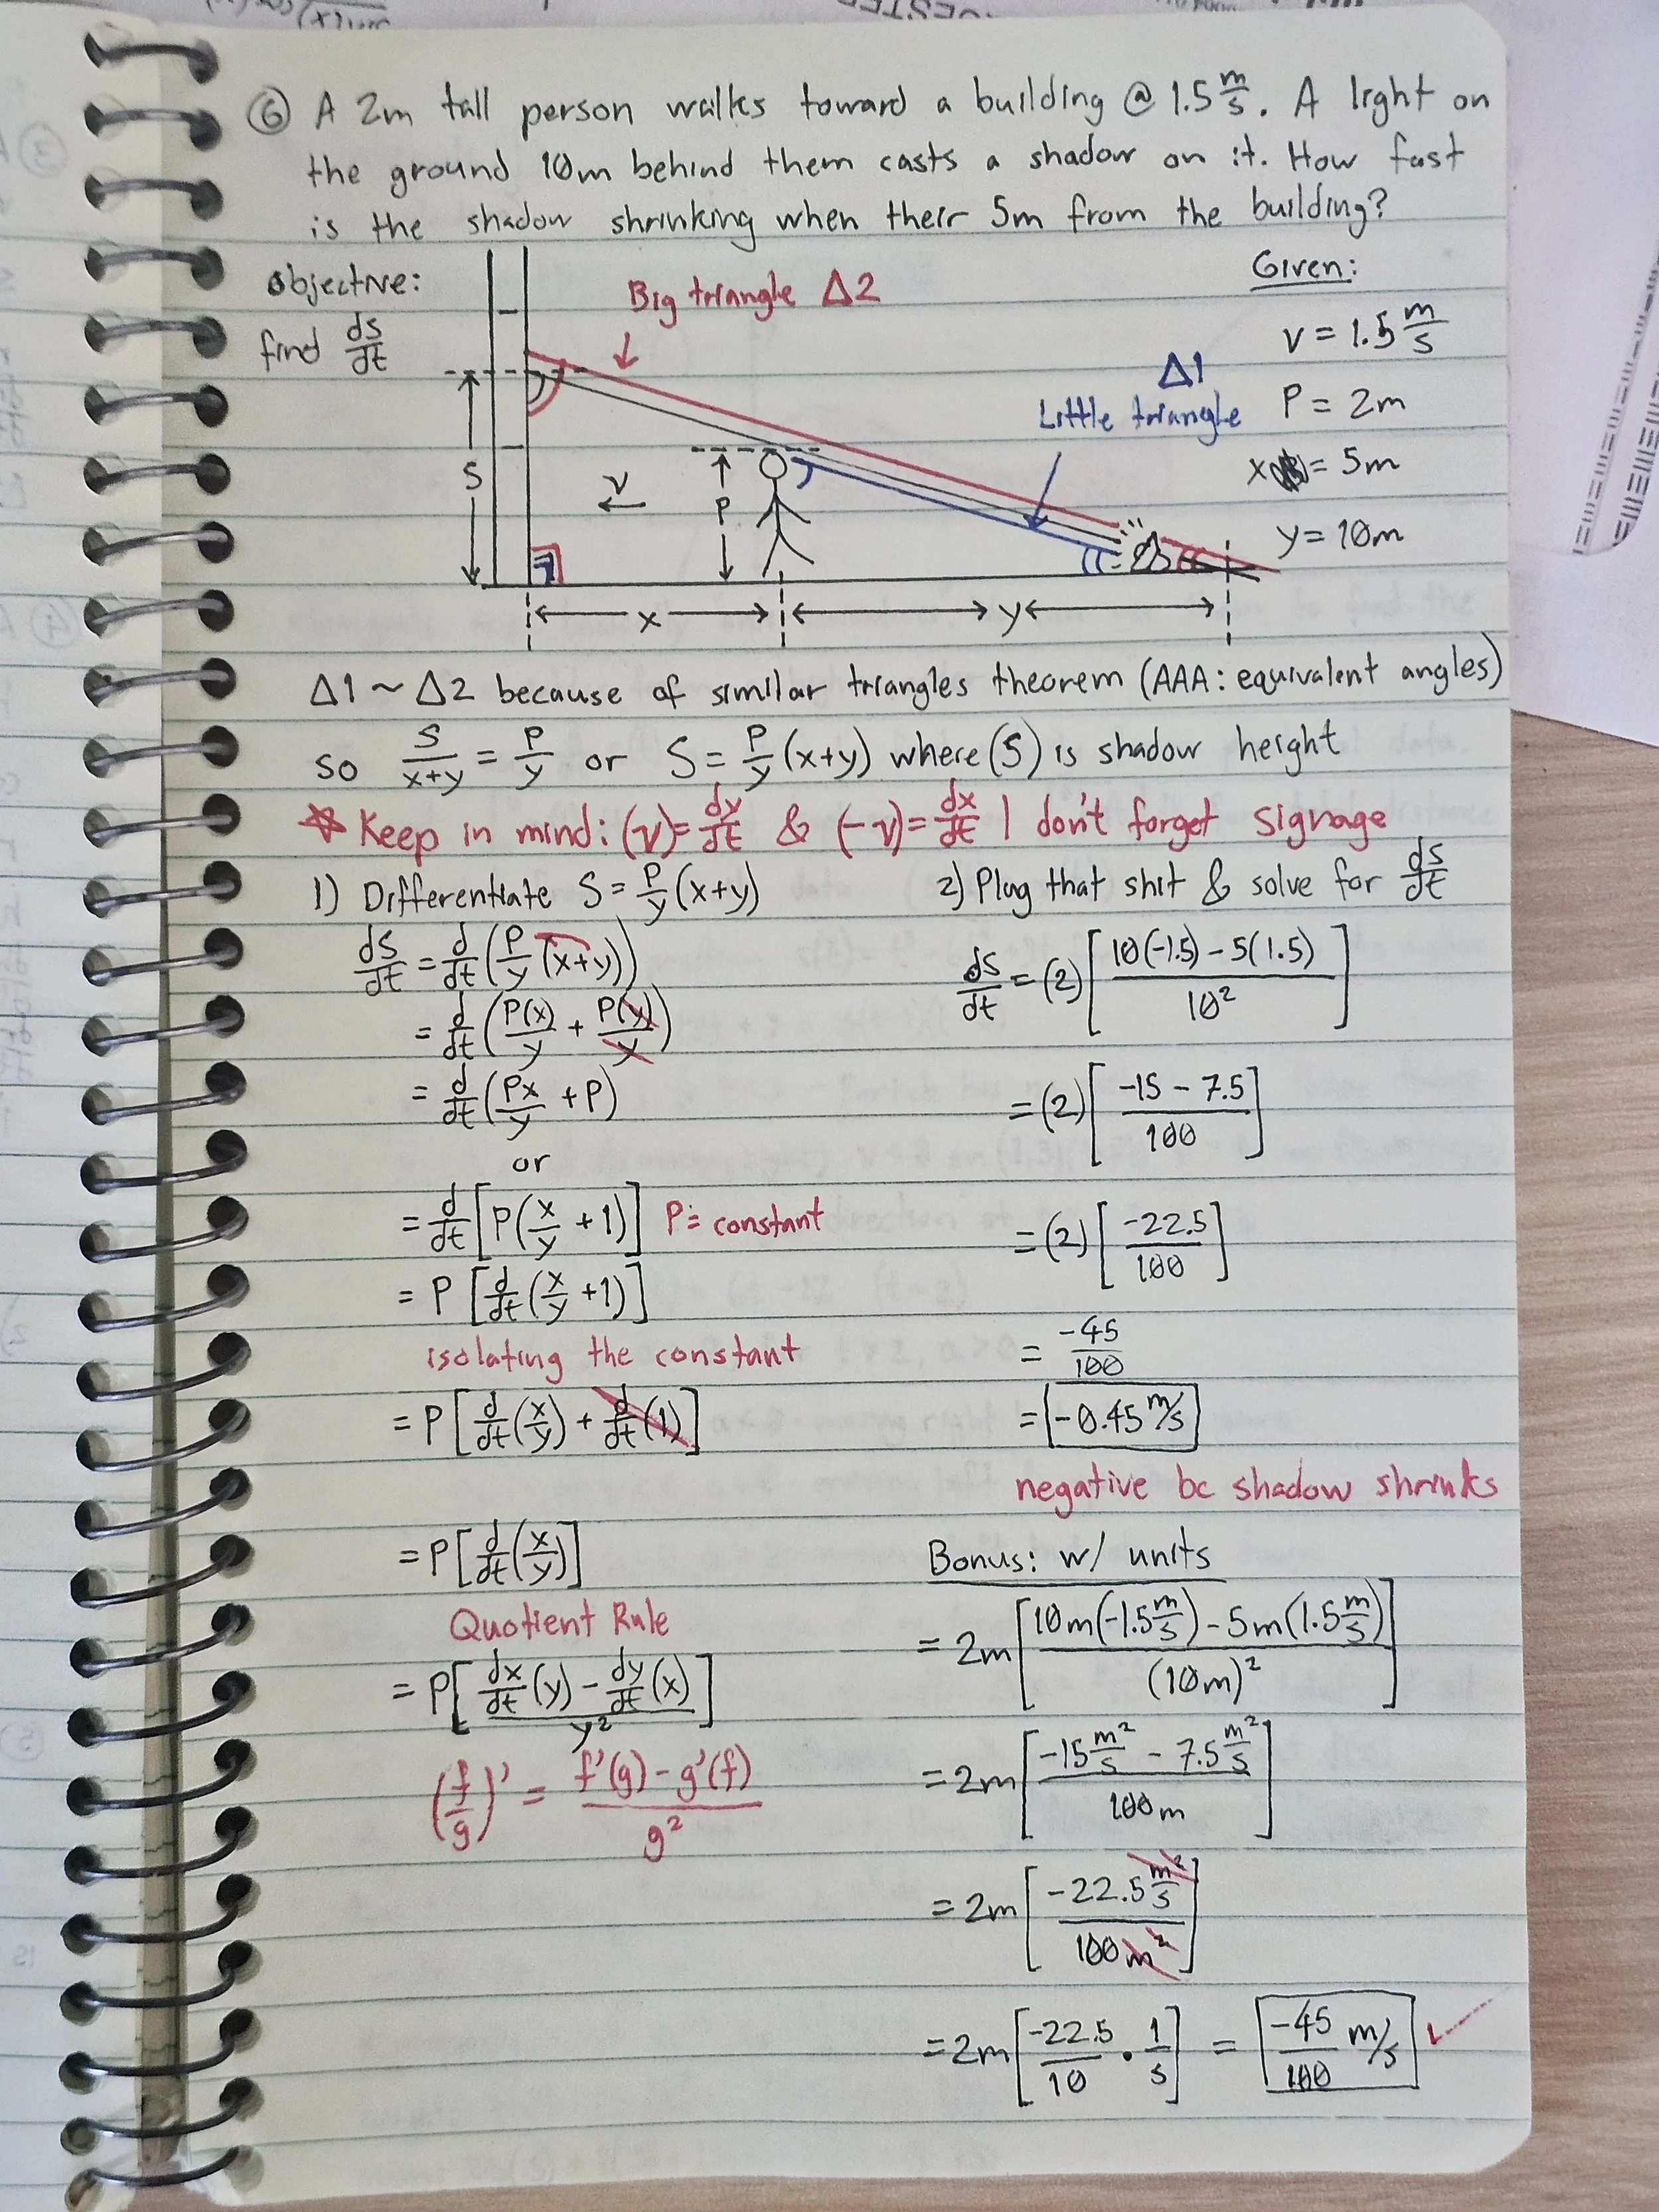 ⑥ A 2m tall person walks toward a building @ 1.5 m/s. A light on
the ground 10m behind them casts a shadow on it. How fast
is the shadow shrinking when their 5m from the building?
Objective:
find ds/dt
Big triangle Δ2
Δ1
Little triangle
Given:
v = 1.5 m/s
P = 2m
x = 5m
y = 10m
S
v
P
x
y
Δ1 ~ Δ2 because of similar triangles theorem (AAA: equivalent angles)
so S/(x+y) = P/y or S = P/y (x+y) where (S) is shadow height
* Keep in mind: (v) = dy/dt & (-v) = dx/dt | don't forget signage
1) Differentiate S = P/y (x+y)
ds/dt = d/dt (P/y (x+y))
= d/dt (P(x)/y + P(y)/y)
= d/dt (Px/y + P)
or
= d/dt [P(x/y + 1)] P = constant
= P [d/dt (x/y + 1)]
isolating the constant
= P [d/dt (x/y) + d/dt (1)]
= P [d/dt (x/y)]
Quotient Rule
= P [(dx/dt (y) - dy/dt (x))/y²]
(f/g)' = (f'(g) - g'(f))/g²
2) Plug that shit & solve for ds/dt
ds/dt = (2) [(10(-1.5) - 5(1.5))/10²]
= (2) [(-15 - 7.5)/100]
= (2) [-22.5/100]
= -45/100
= -0.45 m/s
negative bc shadow shrinks
Bonus: w/ units
= 2m [(10m(-1.5 m/s) - 5m(1.5 m/s))/(10m)²]
= 2m [(-15 m²/s - 7.5 m²/s)/100m]
= 2m [-22.5 m²/s / 100m²]
= 2m [-22.5/10 • 1/s] = -45/100 m/s ✓